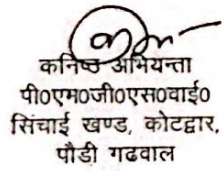 कनिष्ठ अभियन्ता
पी0एम0जी0एस0वाई0
सिंचाई खण्ड, कोटद्वार,
पौडी गढवाल